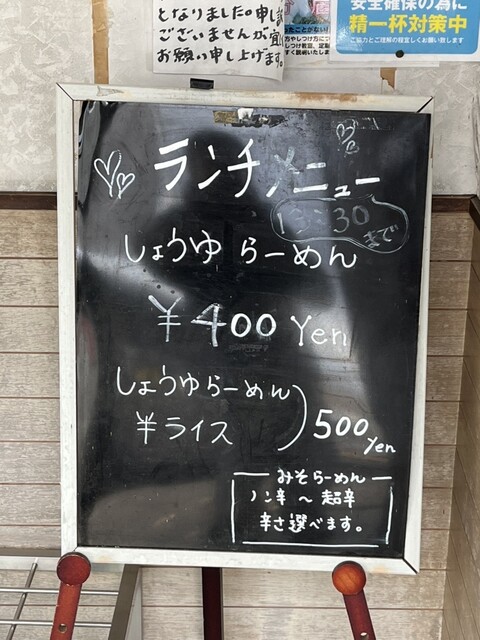 となりました。申し訳
ございませんが宜
お願い申し上げます。
安全確保の為に
精一杯対策中
ご協力とご理解の程宜しくお願い致します
ランチメニュー
13:30
まで
しょうゆらーめん
¥400 Yen
しょうゆらーめん
半ライス
500 yen
みそらーめん
ノン辛〜超辛
辛さ選べます。